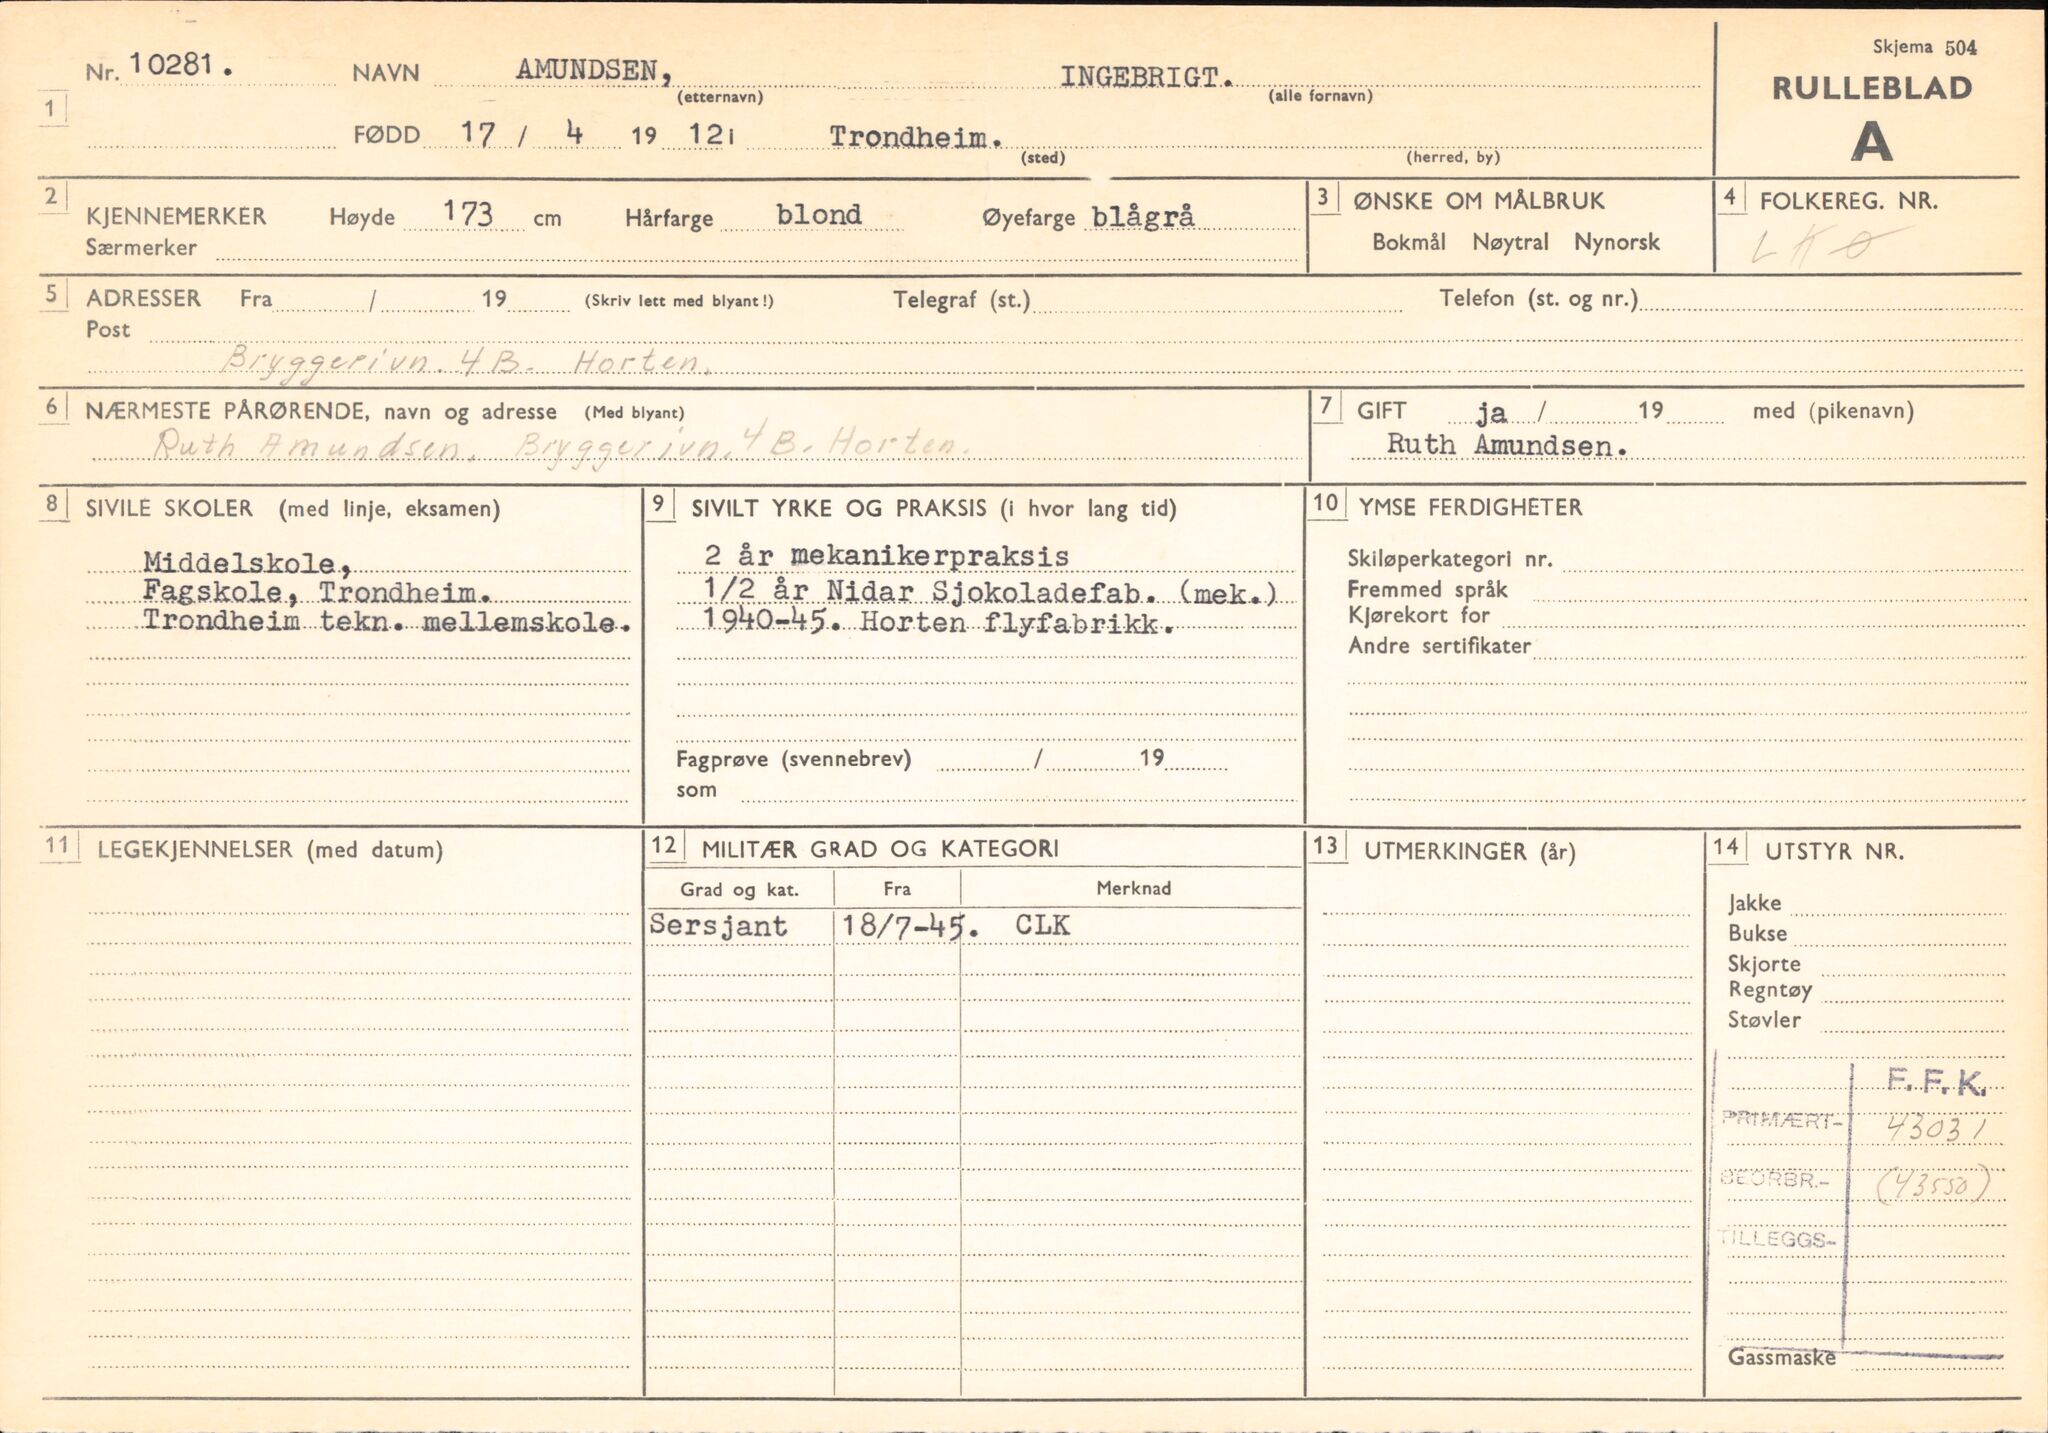 Skjema 504
RULLEBLAD
A
Nr. 10281. NAVN AMUNDSEN, INGEBRIGT.
(etternavn) (alle fornavn)
1
FØDD 17 / 4 19 12 i Trondheim.
(sted) (herred, by)
2 KJENNEMERKER Høyde 173 cm Hårfarge blond Øyefarge blågrå
Særmerker
3 ØNSKE OM MÅLBRUK
Bokmål Nøytral Nynorsk
4 FOLKEREG. NR.
LKØ
5 ADRESSER Fra / 19 (Skriv lett med blyant!) Telegraf (st.) Telefon (st. og nr.)
Post
Bryggerivn. 4 B. Horten.
6 NÆRMESTE PÅRØRENDE, navn og adresse (Med blyant)
Ruth Amundsen, Bryggerivn. 4 B. Horten.
7 GIFT ja / 19 med (pikenavn)
Ruth Amundsen.
8 SIVILE SKOLER (med linje, eksamen)
Middelskole,
Fagskole, Trondheim.
Trondheim tekn. mellemskole.
9 SIVILT YRKE OG PRAKSIS (i hvor lang tid)
2 år mekanikerpraksis
1/2 år Nidar Sjokoladefab. (mek.)
1940-45. Horten flyfabrikk.
Fagprøve (svennebrev) / 19
som
10 YMSE FERDIGHETER
Skiløperkategori nr.
Fremmed språk
Kjørekort for
Andre sertifikater
11 LEGEKJENNELSER (med datum)
12 MILITÆR GRAD OG KATEGORI
Grad og kat. Fra Merknad
Sersjant 18/7-45. CLK
13 UTMERKINGER (år)
14 UTSTYR NR.
Jakke
Bukse
Skjorte
Regntøy
Støvler
F. F. K.
PRIMÆRT- 43031
BEORBR.- (43550)
TILLEGGS-
Gassmaske